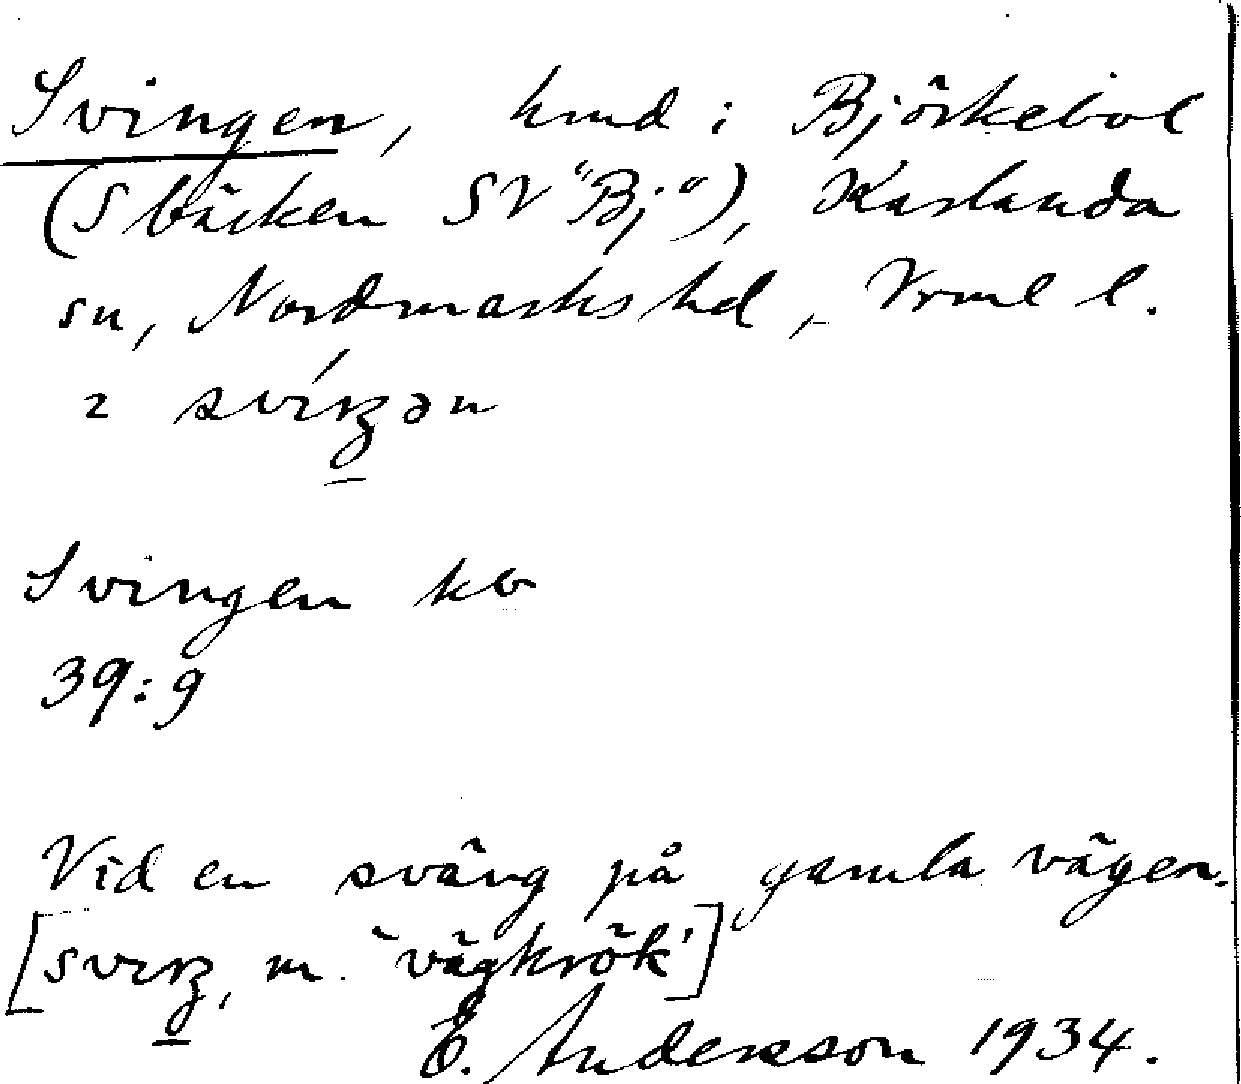 Svingen, hmd i Björkebol
(S bäcken SV "Bj"), Karlanda
sn, Nordmarks hd, Vrml l.
2 svíŋən
Svingen kv
39:9
Vid en sväng på gamla vägen.
[svıŋ, m. 'vägkrök']
E. Andersson 1934.